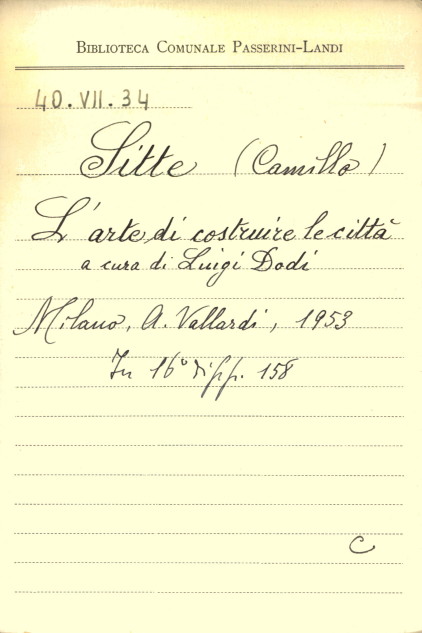 BIBLIOTECA COMUNALE PASSERINI-LANDI
40.VII.34
Sitte (Camillo)
L'arte di costruire le città
a cura di Luigi Dodi
Milano, A. Vallardi, 1953
In 16° di pp. 158
C